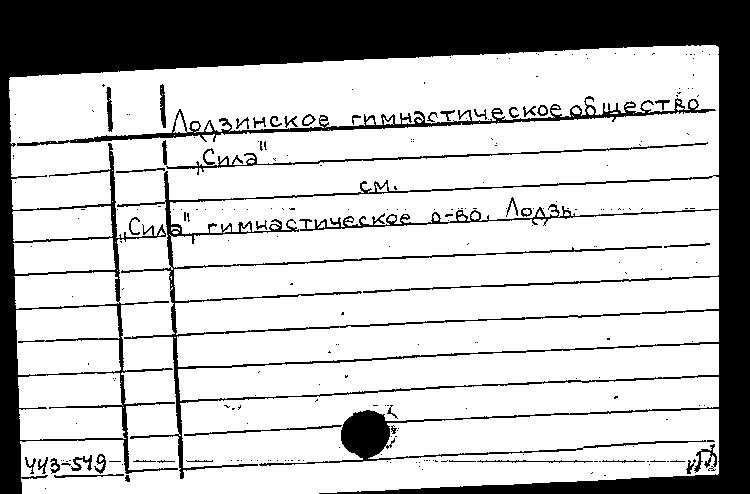 Лодзинское гимнастическое общество
„Сила"
см.
„Сила", гимнастическое о-во. Лодзь.
443-549